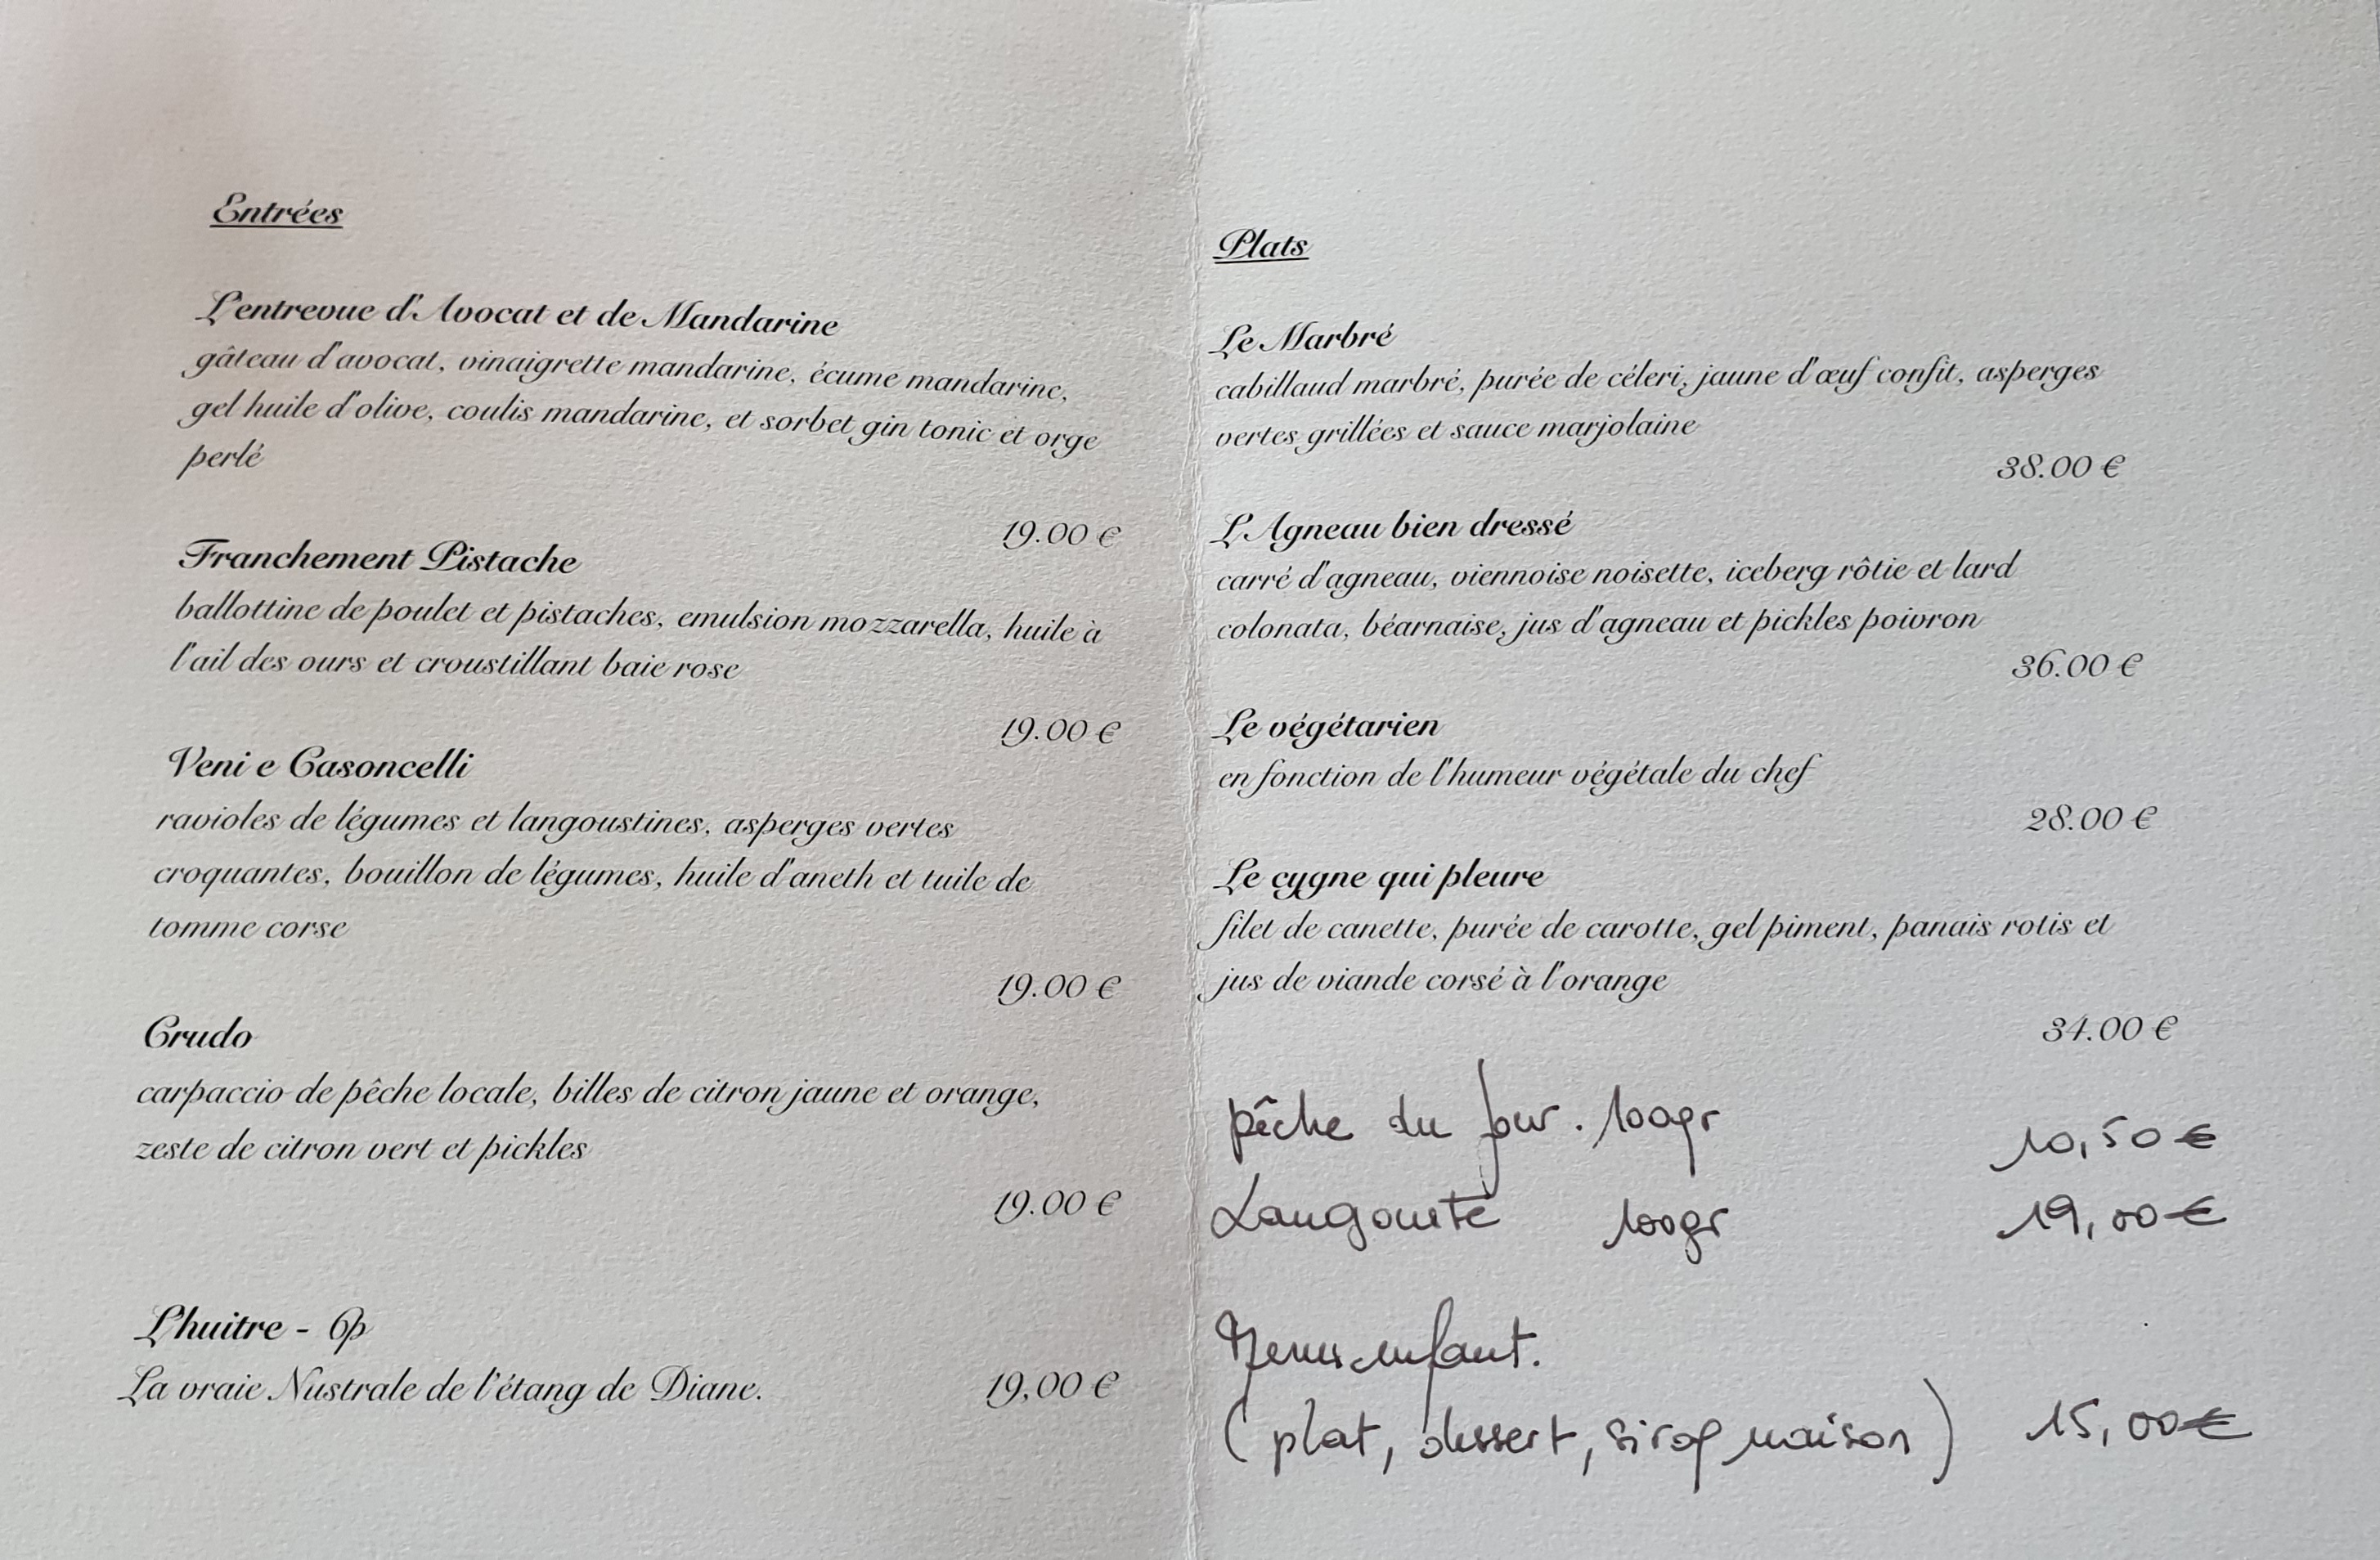 Entrées
L'entrevue d'Avocat et de Mandarine
gâteau d'avocat, vinaigrette mandarine, écume mandarine,
gel huile d'olive, coulis mandarine, et sorbet gin tonic et orge
perlé
19.00 €
Franchement Pistache
ballottine de poulet et pistaches, emulsion mozzarella, huile à
l'ail des ours et croustillant baie rose
19.00 €
Veni e Casoncelli
ravioles de légumes et langoustines, asperges vertes
croquantes, bouillon de légumes, huile d'aneth et tuile de
tomme corse
19.00 €
Crudo
carpaccio de pêche locale, billes de citron jaune et orange,
zeste de citron vert et pickles
19.00 €
L'huitre - 6p
La vraie Nustrale de l'étang de Diane. 19,00 €
Plats
Le Marbré
cabillaud marbré, purée de céleri, jaune d'œuf confit, asperges
vertes grillées et sauce marjolaine
38.00 €
L'Agneau bien dressé
carré d'agneau, viennoise noisette, iceberg rôtie et lard
colonata, béarnaise, jus d'agneau et pickles poivron
36.00 €
Le végétarien
en fonction de l'humeur végétale du chef
28.00 €
Le cygne qui pleure
filet de canette, purée de carotte, gel piment, panais rotis et
jus de viande corsé à l'orange
34.00 €
pêche du jour. 100gr 10,50 €
Langouste 100gr 19,00 €
Menu enfant.
(plat, dessert, sirop maison) 15,00 €